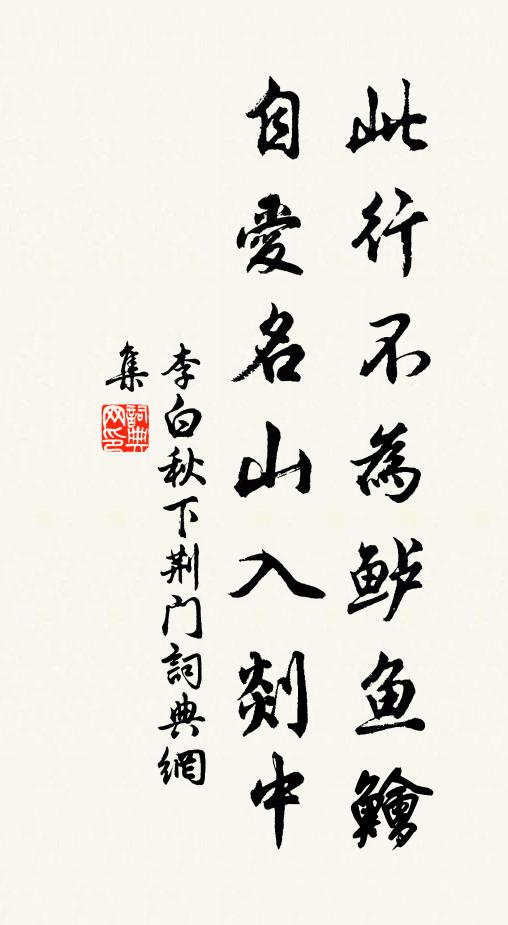 此行不為鲈鱼鱠
自愛名山入剡中
李白秋下荆门詞典網
集
詞典网印